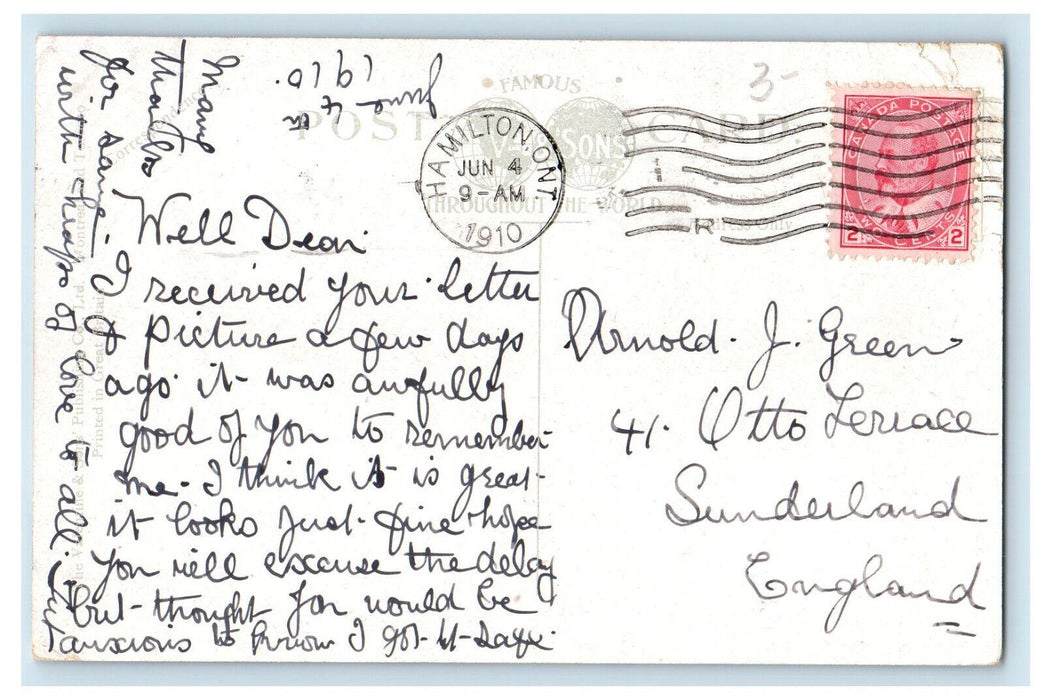 June
4th
1910.
3-
FAMOUS
POST CARD.
SONS
THROUGHOUT THE WORLD
HAMILTON, ONT
JUN 4
9-AM
1910
R
CANADA POSTAGE
2 TWO CENTS 2
Well Dear
I received your letter
& picture a few days
ago. it was awfully
good of you to remember
me. I think it is great.
it looks just fine hope
you will excuse the delay
but thought you would be
anxious to know I got it safe.
Many
thanks
for same.
with heaps of love to all.
Arnold. J. Green
41. Otto Terrace
Sunderland
England
Printed in Great Britain